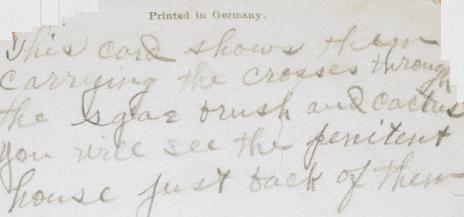 Printed in Germany.
This card shows them
carrying the crosses through
the sgae brush and cactus
you will see the penitent
house just back of them